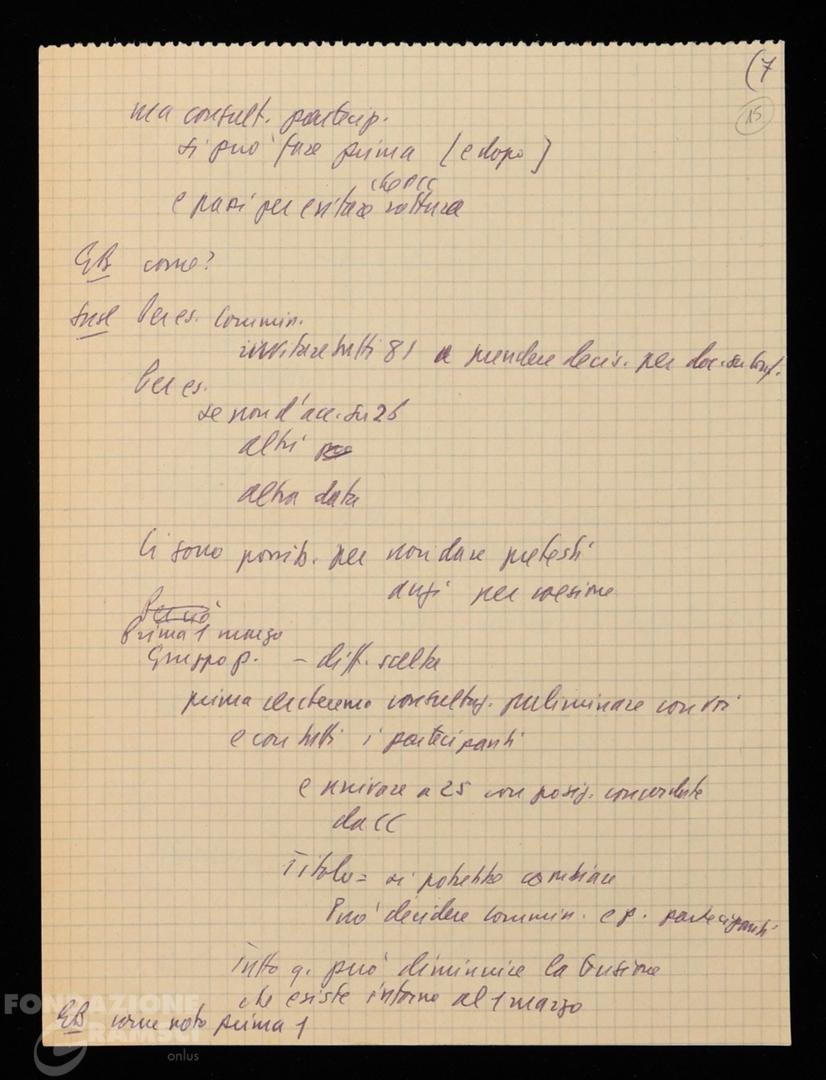 (7
15
ma consult. partecip.
si può fare prima [e dopo]
che PCC
e passi per evitare rottura
EB come?
Susl Per es. Commin.
invitare tutti 81 a prendere decis. per doc. su conf.
Per es.
se non d'acc. su 26
altri
altra data
Ci sono possib. per non dare pretesti
anzi per coesione
Perciò
Prima 1 marzo
Gruppo p. – diff. scelta
prima un consultaz. preliminare con voi
e con tutti i partecipanti
e arrivare a 25 con posiz. concordate
da CC
Titolo = si potrebbe cambiare
Può decidere commin. e p. partecipanti
Tutto q. può diminuire la tensione
che esiste intorno al 1 marzo
EB come noto prima 1
FONDAZIONE
GRAMSCI
onlus